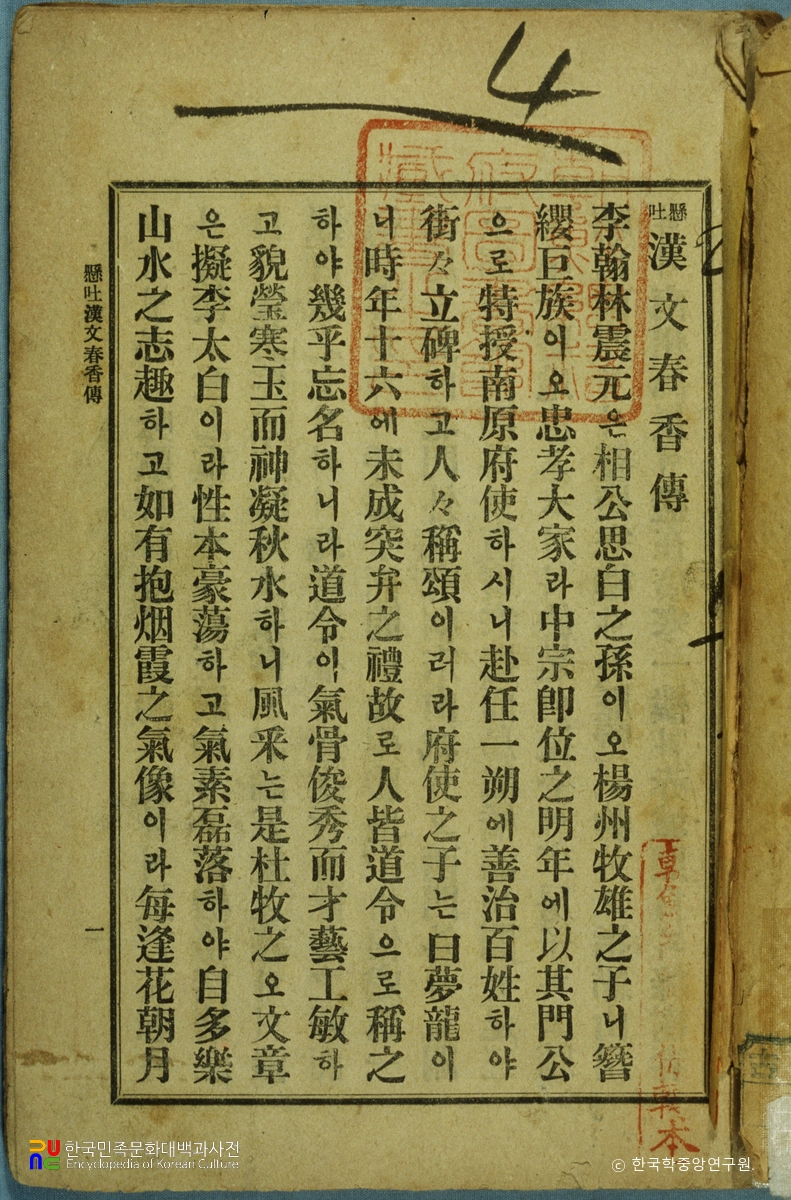 4
懸吐漢文春香傳
李翰林震元은相公思白之孫이오楊州牧雄之子니簪
纓巨族이오忠孝大家라中宗卽位之明年에以其門公
으로特授南原府使하시니赴任一朔에善治百姓하야
街々立碑하고人々稱頌이러라府使之子는曰夢龍이
니時年十六에未成突弁之禮故로人皆道令으로稱之
하야幾乎忘名하니라道令이氣骨俊秀而才藝工敏하
고貌瑩寒玉而神凝秋水하니風采는是杜牧之오文章
은擬李太白이라性本豪蕩하고氣素磊落하야自多樂
山水之志趣하고如有抱烟霞之氣像이라每逢花朝月
懸吐漢文春香傳
一
本
한국민족문화대백과사전
Encyclopedia of Korean Culture
ⓒ 한국학중앙연구원